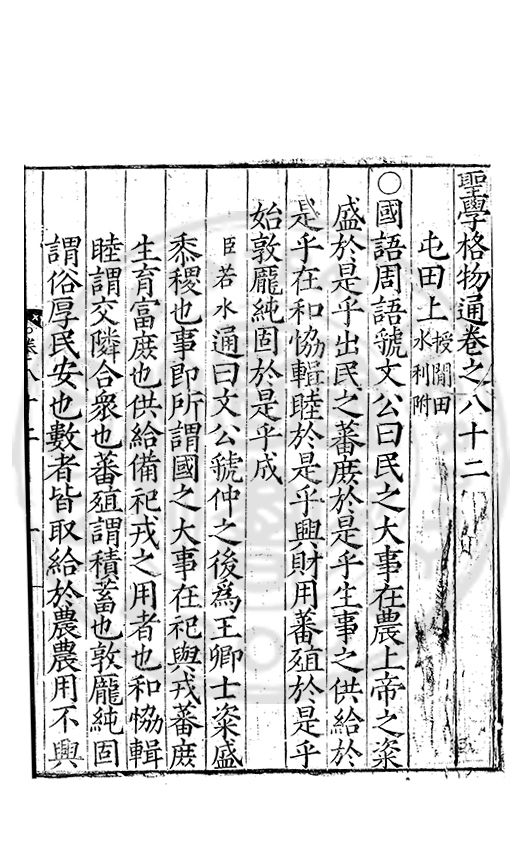 聖學格物通卷之八十二
屯田上
授閒田
水利附
○國語周語虢文公曰民之大事在農上帝之粢
盛於是乎出民之蕃庶於是乎生事之供給於
是乎在和協輯睦於是乎興財用蕃殖於是乎
始敦龎純固於是乎成
臣若水通曰文公虢仲之後爲王卿士粢盛
黍稷也事即所謂國之大事在祀與戎蕃庶
生育富庶也供給備祀戎之用者也和協輯
睦謂交隣合衆也蕃殖謂積蓄也敦龎純固
謂俗厚民安也數者皆取給於農農用不興
卷八十二
一